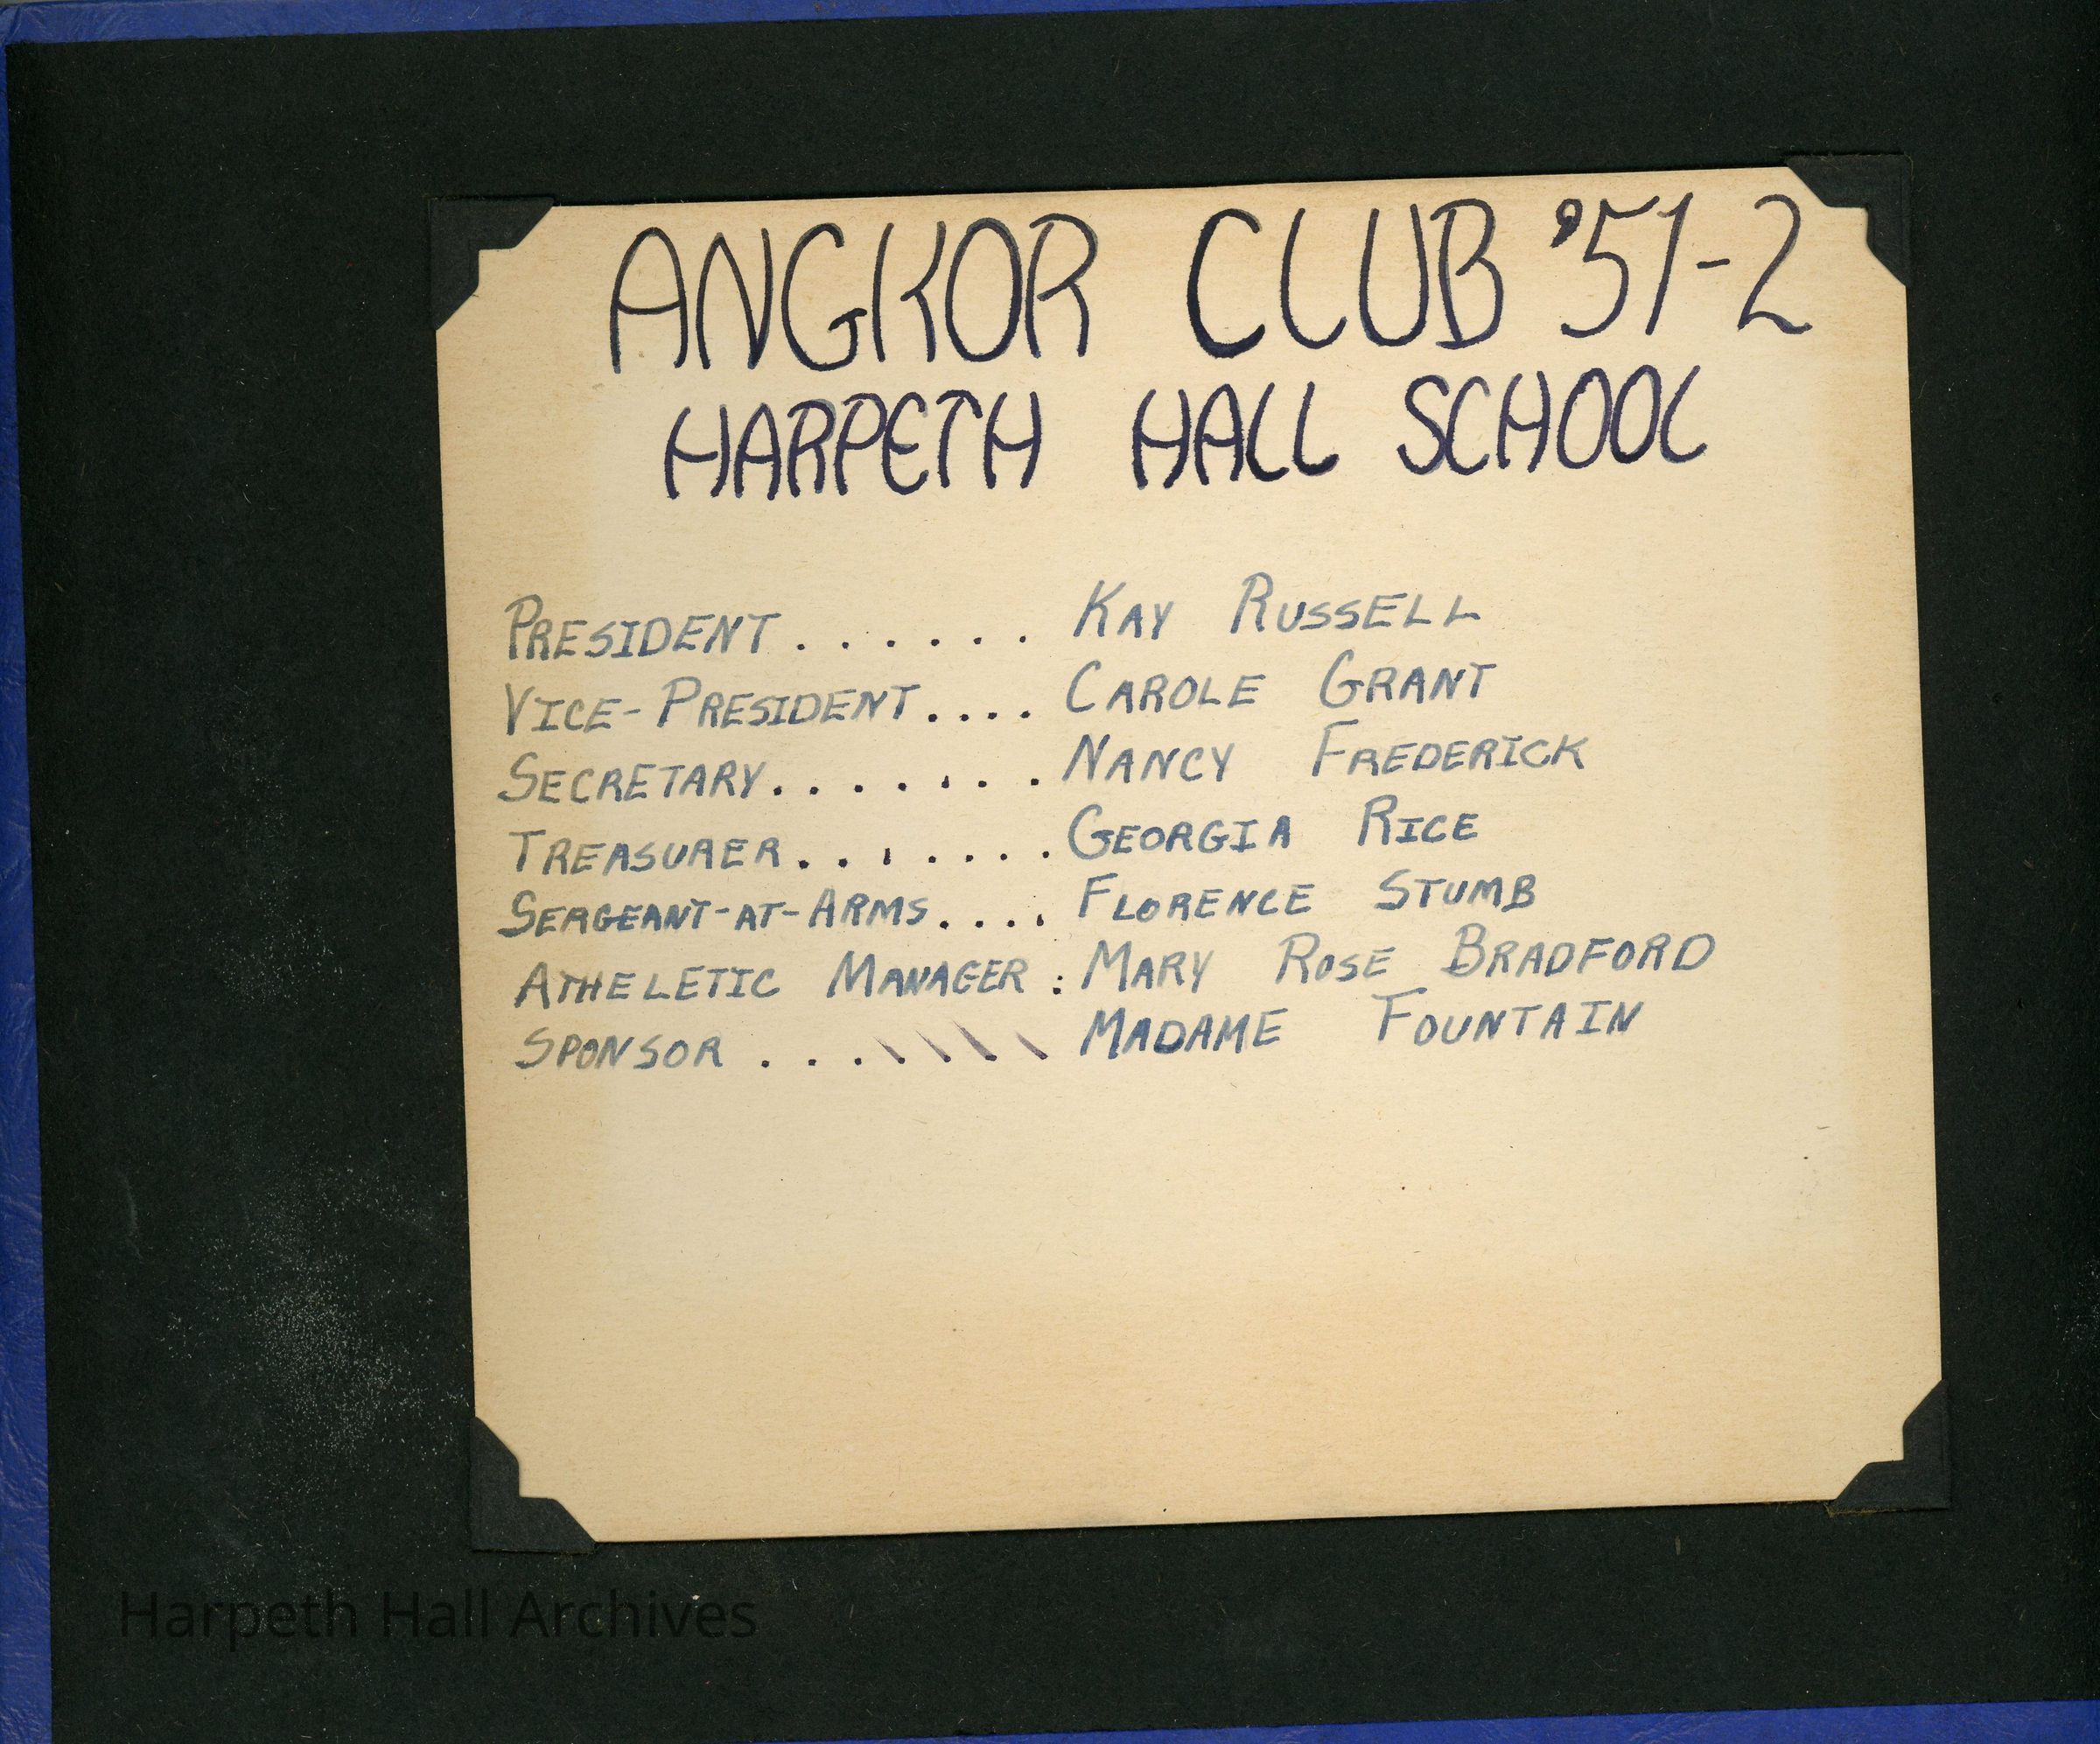 ANGKOR CLUB '51-2
HARPETH HALL SCHOOL
PRESIDENT ...... KAY RUSSELL
VICE-PRESIDENT .... CAROLE GRANT
SECRETARY ....... NANCY FREDERICK
TREASURER ....... GEORGIA RICE
SERGEANT-AT-ARMS .... FLORENCE STUMB
ATHELETIC MANAGER : MARY ROSE BRADFORD
SPONSOR ...\\\\ MADAME FOUNTAIN
Harpeth Hall Archives